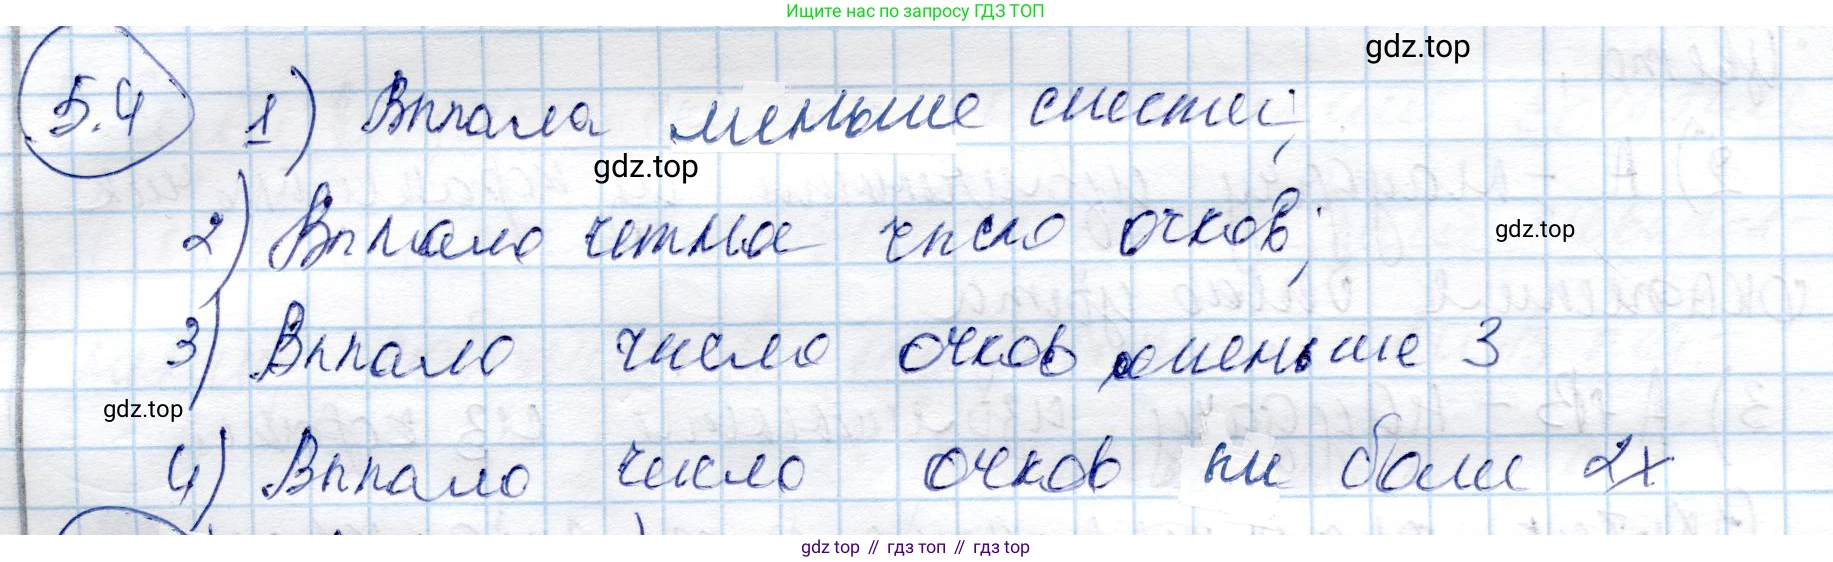 Ищите нас по запросу ГДЗ ТОП
gdz.top
5.4 1) Выпала меньше шести;
gdz.top
2) Выпало четное число очков;
gdz.top
3) Выпало число очков меньше 3
gdz.top
4) Выпало число очков не более 2х
gdz top // гдз топ // гдз top